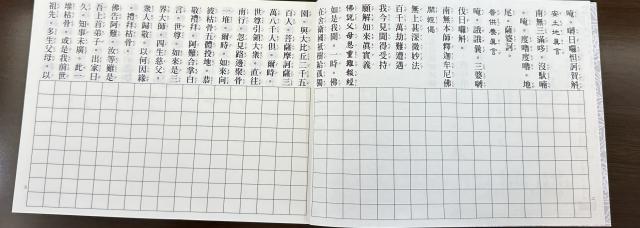 唵。嚩日囉怛訶賀斛
安土地真言
南無三滿哆。沒馱喃
。唵。度嚕度嚕。地
尾。薩婆訶。
普供養真言
唵。誐誐曩。三婆嚩
伐日囉斛。
南無本師釋迦牟尼佛
開經偈
無上甚深微妙法
百千萬劫難遭遇
我今見聞得受持
願解如來真實義
佛說父母恩重難報經
如是我聞。一時。佛
在舍衛國祇樹給孤獨
園。與大比丘二千五
百人。菩薩摩訶薩三
萬八千人俱。爾時。
世尊引領大眾。直往
南行。忽見路邊聚骨
一堆。爾時。如來向
彼枯骨。五體投地。恭
敬禮拜。阿難合掌白
言。世尊。如來是三
界大師。四生慈父。
眾人歸敬。以何因緣
。禮拜枯骨。
佛告阿難。汝等雖是
吾上首弟子。出家日
久。知事未廣。此一
堆枯骨。或是我前世
祖先。多生父母。以